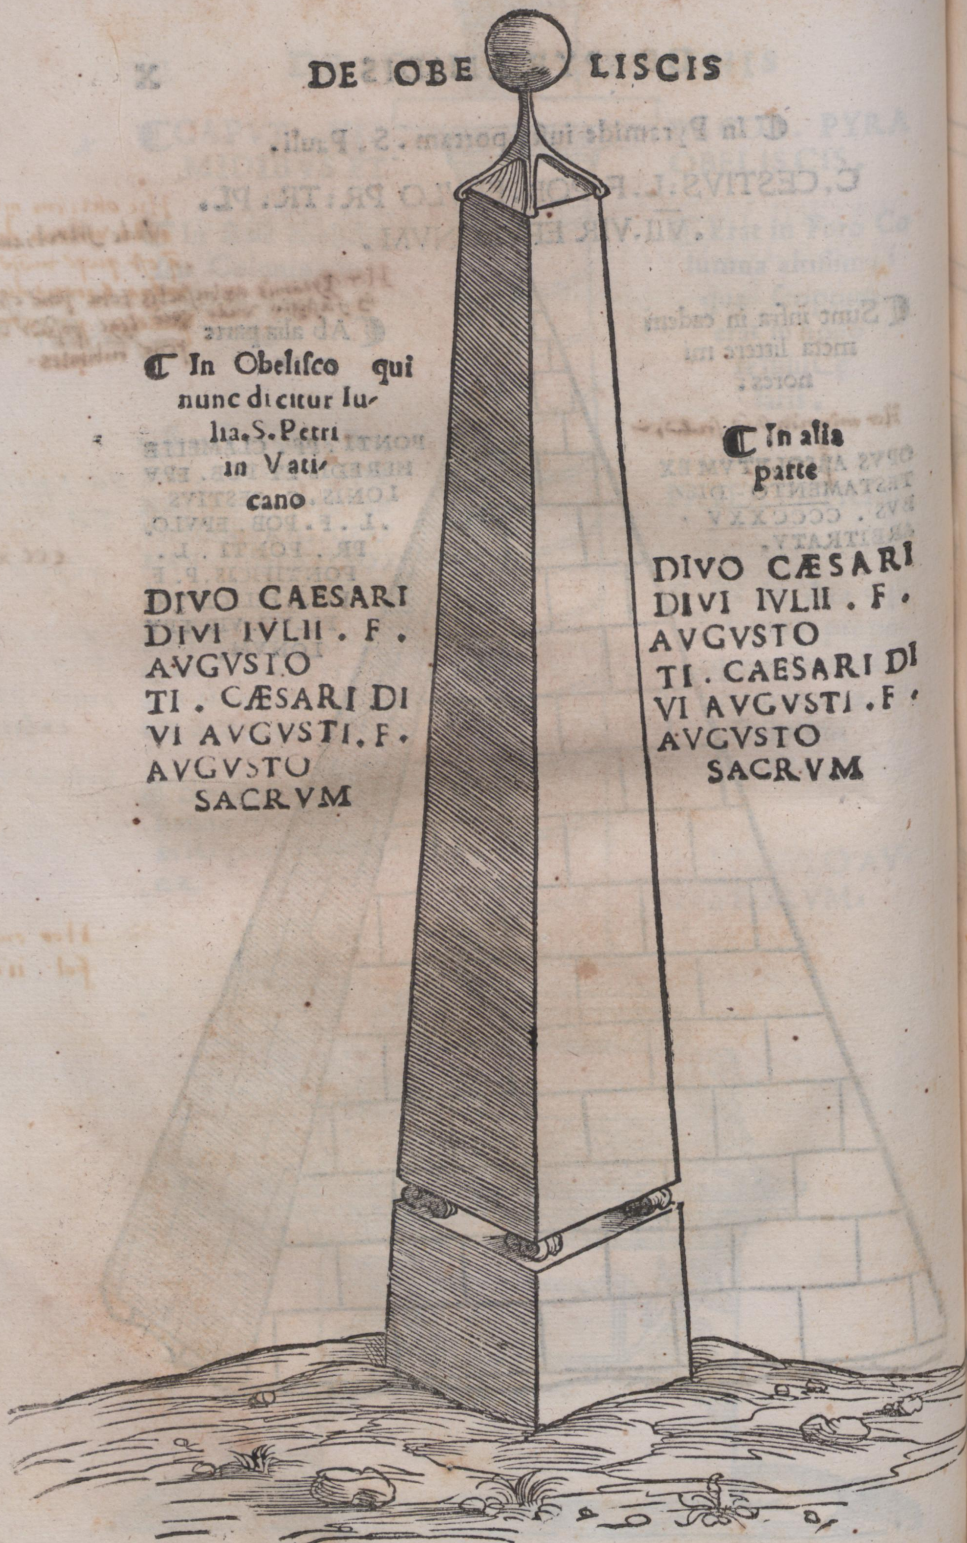 DE OBE LISCIS
☾ In Obelisco qui
nunc dicitur Iu-
lia. S. Petri
in Vati-
cano
DIVO CAESARI
DIVI IVLII . F .
AVGVSTO
TI . CÆSARI DI
VI AVGVSTI . F .
AVGVSTO
SACRVM
☾ In alia
parte
DIVO CÆSARI
DIVI IVLII . F .
AVGVSTO
TI . CAESARI DI
VI AVGVSTI . F .
AVGVSTO
SACRVM